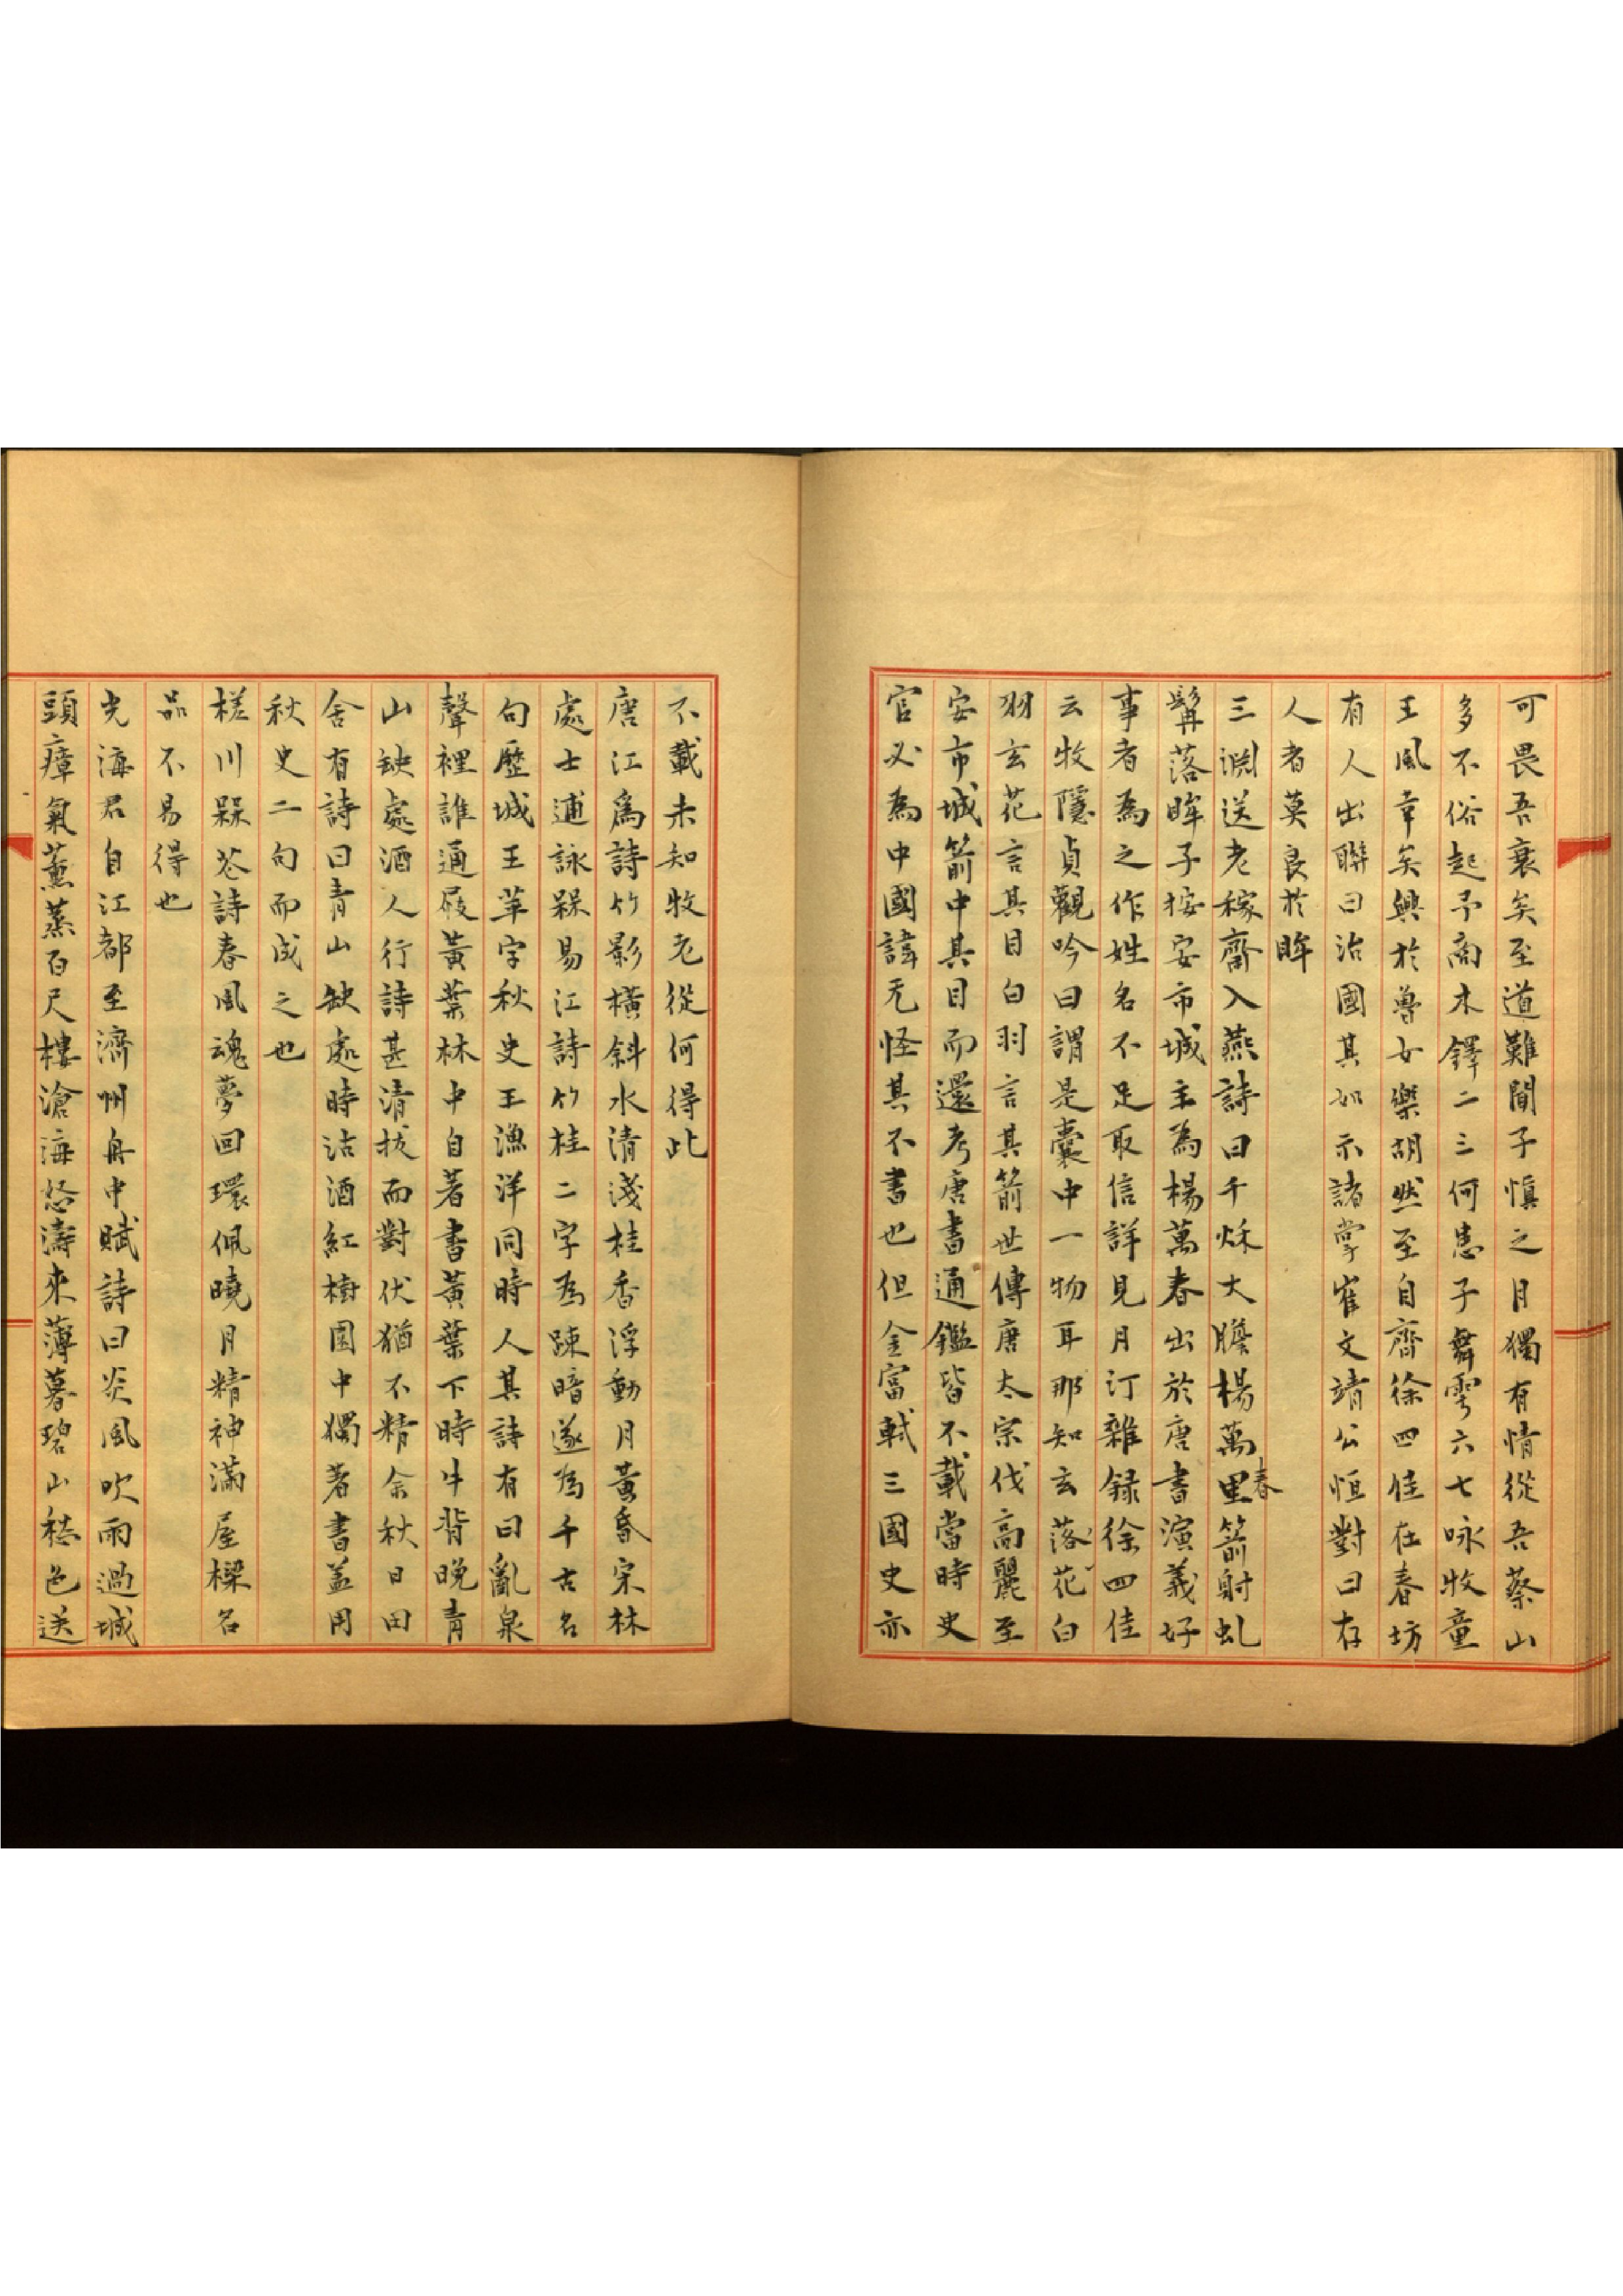 可畏吾衰矣至道難聞子慎之月獨有情從吾蔡山
多不俗起予商木鐸二三何患子舞雩六七咏牧童
王風幸矣興於魯女樂胡然至自齊徐四佳在春坊
有人出聯曰治國其如示諸掌崔文靖公恒對曰存
人者莫良於眸
三淵送老稼齋入燕詩曰千秌大膽楊萬里春箭射虬
髯落眸子按安市城主為楊萬春出於唐書演義好
事者為之作姓名不足取信詳見月汀雜録徐四佳
云牧隱貞觀吟曰謂是囊中一物耳那知玄花落白
羽玄花言其目白羽言其箭世傳唐太宗伐高麗至
安市城箭中其目而還考唐書通鑑皆不載當時史
官必為中國諱无怪其不書也但金富軾三國史亦
不載未知牧老從何得此
唐江為詩竹影橫斜水清淺桂香浮動月黃昏宋林
處士逋詠槑易江詩竹桂二字為踈暗遂為千古名
句歷城王苹字秋史王漁洋同時人其詩有曰亂泉
聲裡誰通屐黃葉林中自著書黃葉下時牛背晚青
山缺處酒人行詩甚清拔而對伏猶不精余秋日田
舍有詩曰青山缺處時沽酒紅樹園中獨著書盖用
秋史二句而成之也
槎川槑花詩春風魂夢回環佩曉月精神滿屋樑名
品不易得也
光海君自江都至濟州舟中賦詩曰炎風吹雨過城
頭瘴氣薰蒸百尺樓滄海怒濤來薄暮碧山愁色送